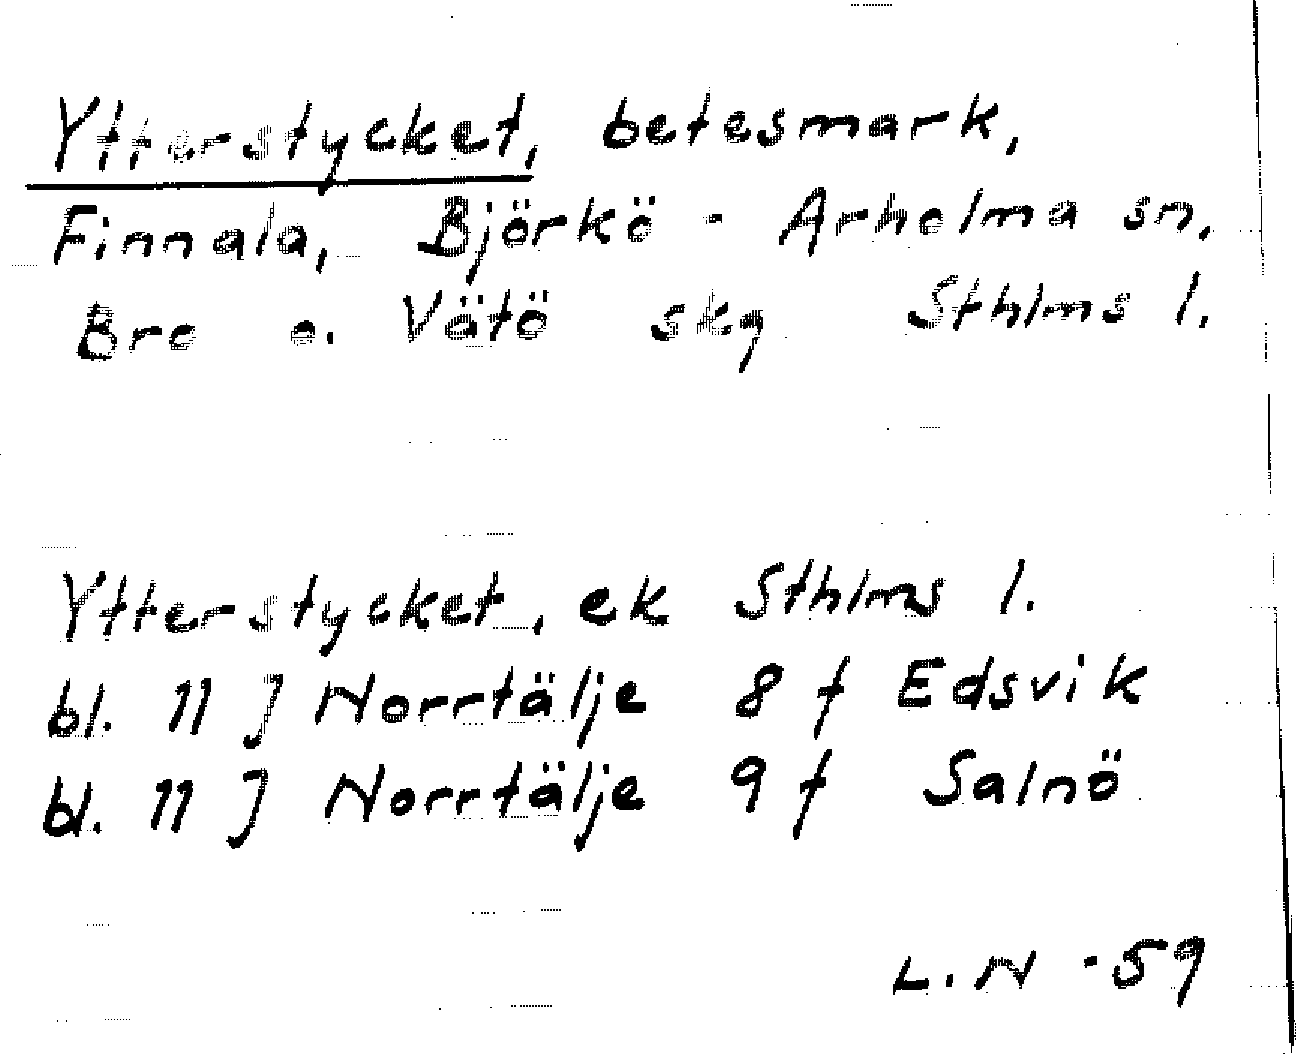 Ytterstycket, betesmark,
Finnala, Björkö - Arholma sn,
Bro o. Vätö skg Sthlms l.
Ytterstycket, ek Sthlms l.
bl. 11 J Norrtälje 8 f Edsvik
bl. 11 J Norrtälje 9 f Salnö
L. N -59